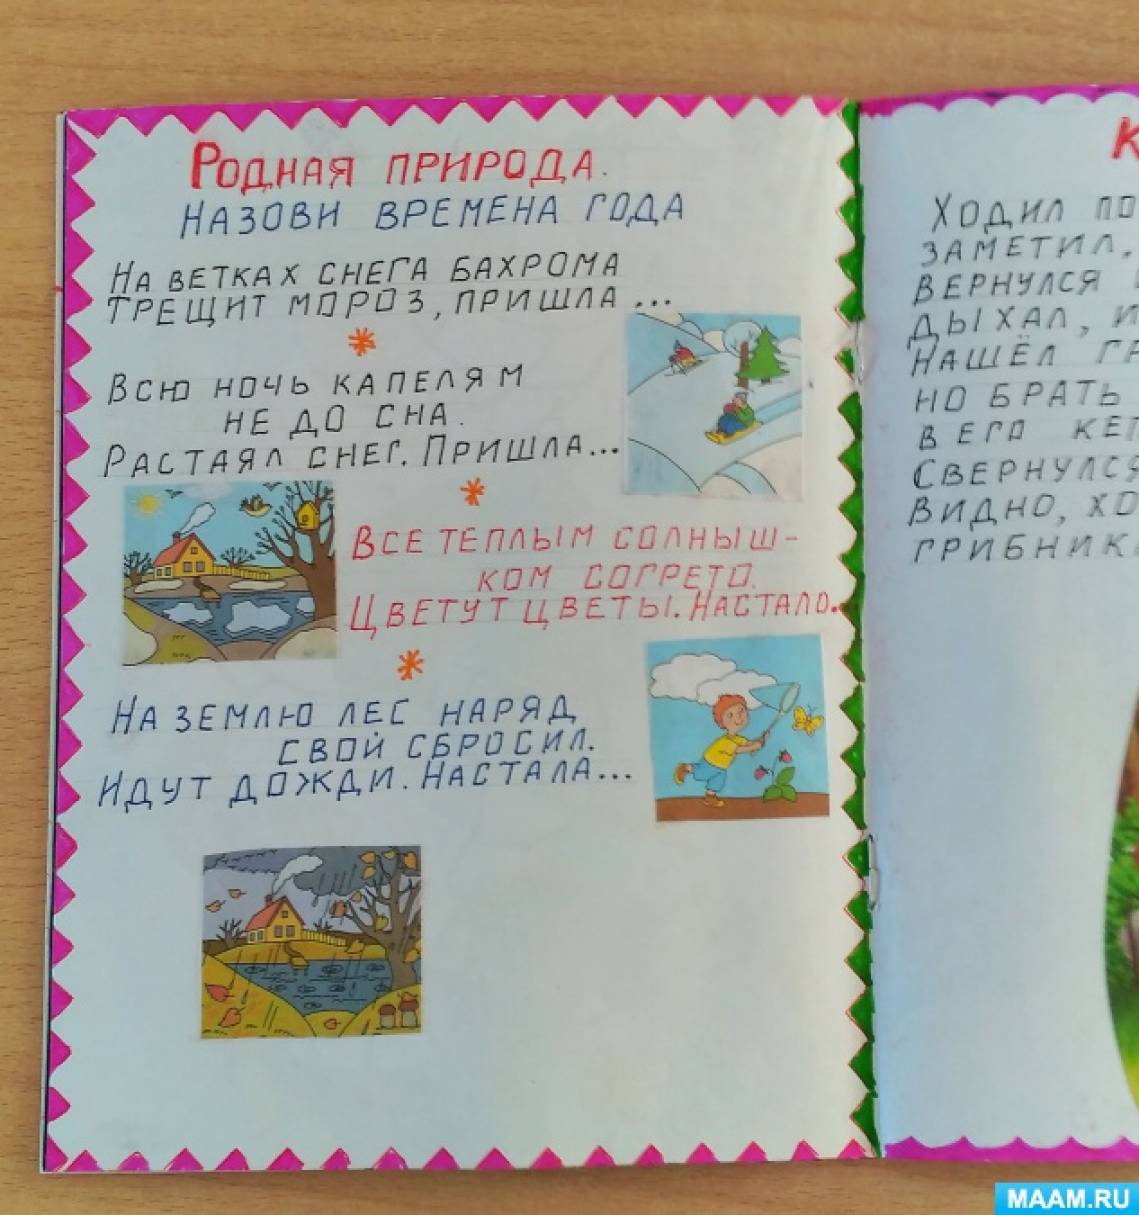 Родная природа.
Назови времена года
На ветках снега бахрома
трещит мороз, пришла ...
Всю ночь капелям
не до сна.
Растаял снег. Пришла...
Все теплым солныш-
ком согрето.
Цветут цветы. Настало..
На землю лес наряд
свой сбросил.
Идут дожди. Настала...
К
Ходил по
заметил,
вернулся
дыхал, и
Нашёл гр
но брать
в его кег
Свернулся
видно, хо
грибник
MAAM.RU